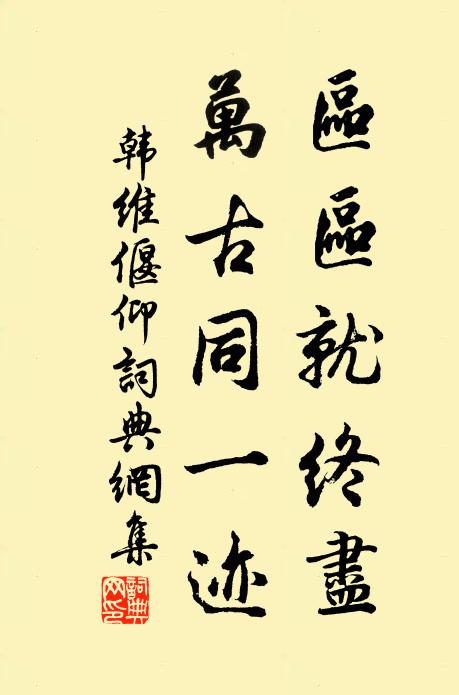 區區就終盡
萬古同一迹
韩维偃仰詞典網集
詞典网印